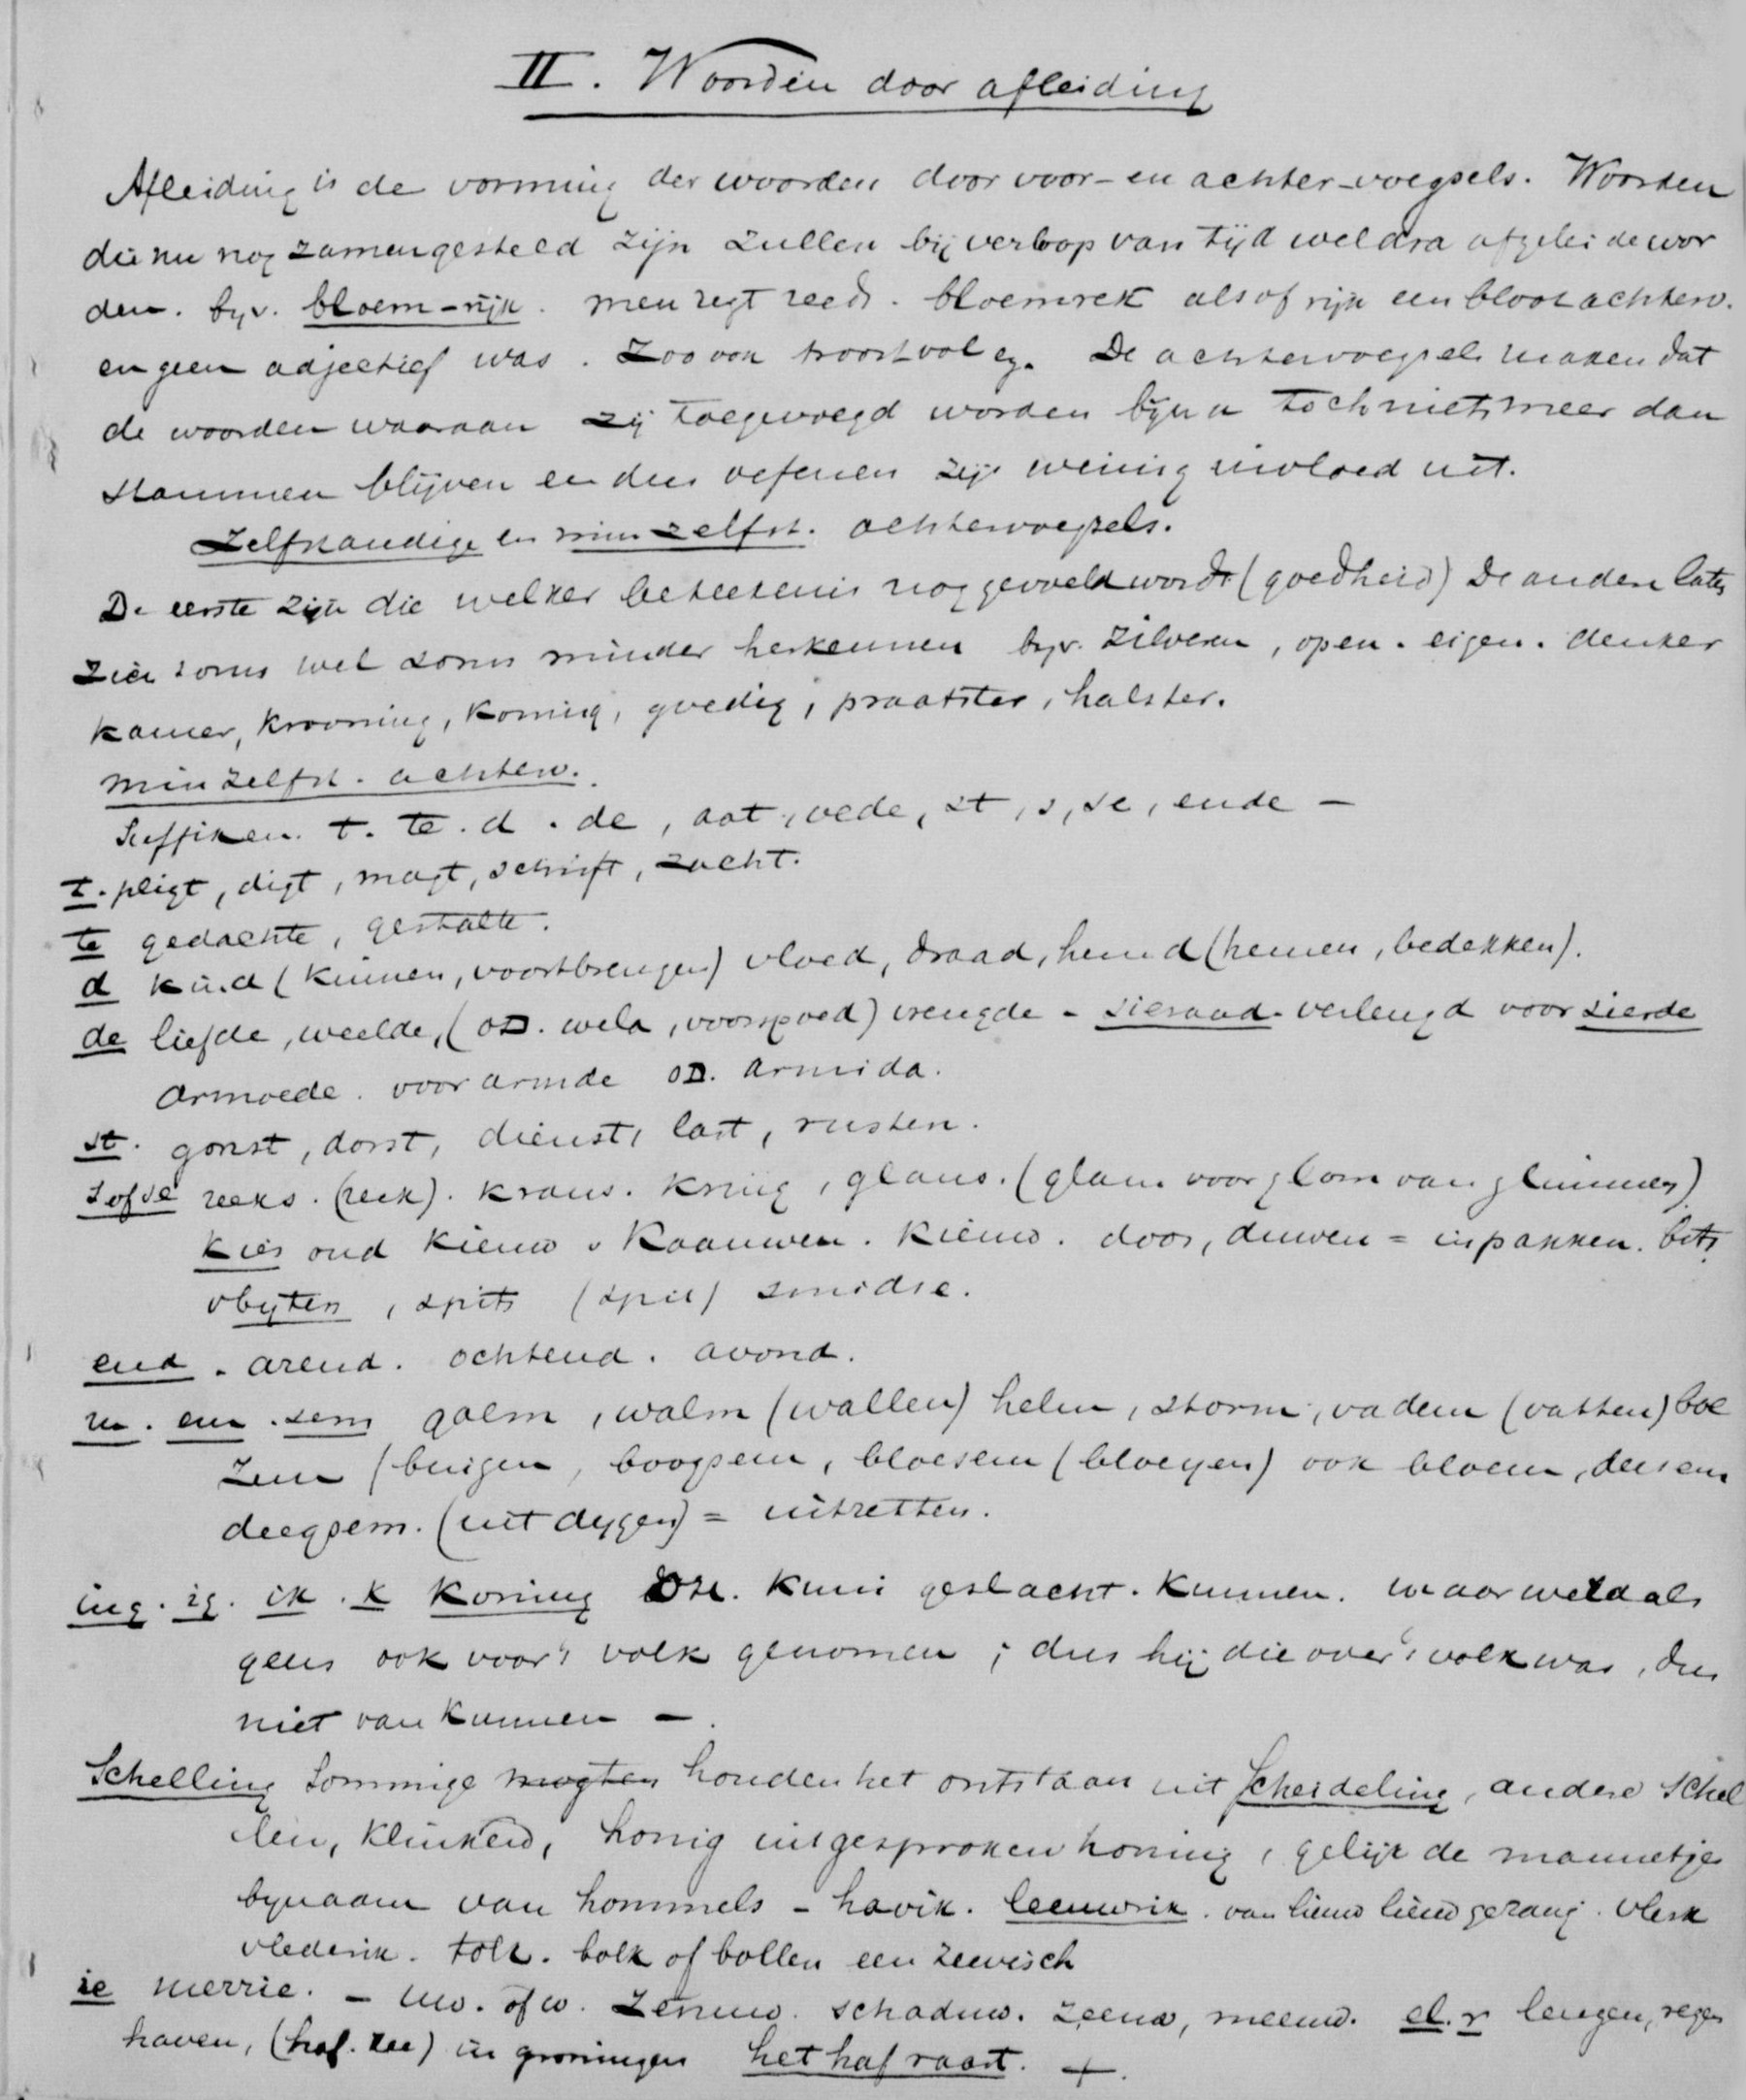 II. Woorden door afleiding
Afleiding is de vorming der woorden door voor- en achter-voegsels. Woorden
die nu nog zamengesteld zijn zullen bij verloop van tijd weldra afgeleide wor
den. byv. bloem-rijk. men zegt reeds. bloemrek alsof rijk een bloot achterv.
en geen adjectief was. Zoo ook troostvol De achtervoegsels maken dat
de woorden waaraan zij toegevoegd worden bijna toch niets meer dan
stammen blijven en dus oefenen zij weinig invloed uit.
Zelfstandige en min zelfst. achtervoegsels.
De eerste zijn die welker beteekenis nog gevoeld wordt (goedheid) De andere laten
zich soms wel soms minder herkennen byv. zilveren, open. eigen. denker
kamer, krooning, koning, goedig, praatster, halster.
min zelfst. achterv.
Suffixen. t. te. d. de, aat, oede, st, s, se, ende -
t. pligt, digt, magt, schrift, zacht.
te gedachte, gestalte.
d kind (kinnen, voortbrengen) vloed, draad, hemd (hemen, bedekken).
de liefde, weelde, (OD. wela, voorspoed) vreugde - sieraad. verlengd voor sierde
Armoede. voor armde OD. armida.
st. gonst, dorst, dienst, last, rusten.
s of se reeks. (reek). krans. kring, glans. (glam voor glom van glimmen)
kies oud kieuw v kaauwen. kieuw. doos, duwen = inpakken. bits
v byten, spits (spit) smidse.
end. arend. ochtend. avond.
m. em. sem galm, walm (wallen) helm, storm, vadem (vatten) boe
zem (buigen, boogsem, bloesem (bloeyen) ook bloem, deesem
deegsem. (uit dygen) = uitzetten.
ing. ig. ik. k koning kuni geslacht. kunnen. maar weldals
gens ook voor 't volk genomen; dus hij die over 't volk was, dus
niet van kunnen -.
Schelling Sommige mogten houden het ontstaan uit Scheideling, andere Schel
len, klinken, honig uitgesproken honing, gelijk de mannetjes
bynaam van hommels - havik. leeuwrik. van lieuw lieuw gezang. vlerk
vlederik. tolk. bolk of bollen een zeevisch
ie merrie. - uw. of w. Zenuw. schaduw. zeeuw, meeuw. el. r leugen, regen
haven, (haf. zee) in groningen het haf raast. +.